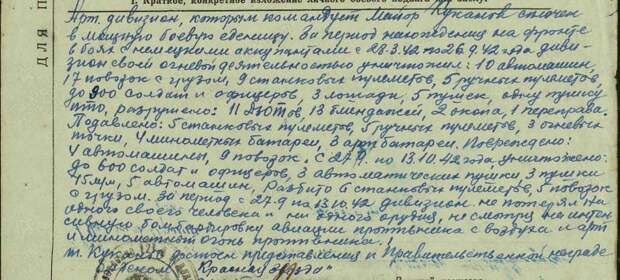 I. Краткое, конкретное изложение личного боевого подвига или заслуг.
ДЛЯ П
Арт. дивизион, которым командует Майор Куканов сплочен
в мощную боевую единицу. За период нахождения на фронте
в боях с немецкими оккупантами с 28.3.42 по 26.9.42 года диви-
зион своей огневой деятельностью уничтожил: 10 автомашин,
17 повозок с грузом, 9 станковых пулеметов, 5 ручных пулеметов,
до 900 солдат и офицеров, 3 лошади, 5 пушек, одну пушку
ПТО, разрушено: 11 ДЗОТов, 13 блиндажей, 2 окопа, 1 переправа.
Подавлено: 5 станковых пулеметов, 5 ручных пулеметов, 3 огневых
точки, 4 минометных батареи, 3 арт батареи. Повреждено:
4 автомашины, 9 повозок. С 27.9. по 13.10.42 года уничтожено:
до 600 солдат и офицеров, 3 автоматических пушки, 3 пушки
75мм, 5 автомашин, разбито 6 станковых пулеметов, 5 повозок
с грузом. За период с 27.9 по 13.10.42 дивизион не потерял ни
одного своего человека и ни одного орудия, не смотря на интен
сивную бомбардировку авиации противника с воздуха и арт
и минометный огонь противника!
т. достоин представления к Правительственной награде
орденом "Красная Звезда"